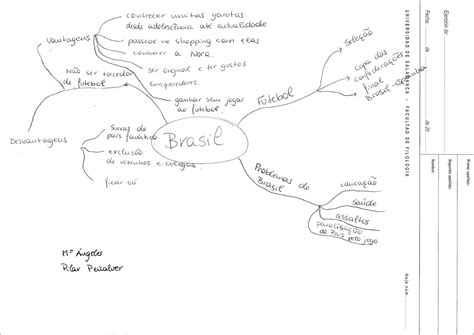 conhecer muitas garotas
desde adolescência até actualidade
Vantagens
passear ve shopping com elas
conhecer a Nora.
ser original e ter gostos
Não ser torcedor
de futebol
ganhar sem jogo
ao futebol
Desvantagens
Surras de
país fanático
exclusão
de vizinhos e colegas
ficar só
Brasil
Futebol
Seleção
copa das
confederações
final
Brasil-Espanha
Problemas do
Brasil
educação
saúde
assaltos
paralisação
do país pelo jogo
Mª Ángeles
Pilar Peñalver
Ejercicio de
Fecha
de
de 20
UNIVERSIDAD DE SALAMANCA - FACULTAD DE FILOLOGÍA
Primer apellido:
Segundo apellido:
Nombre:
Hoja núm.